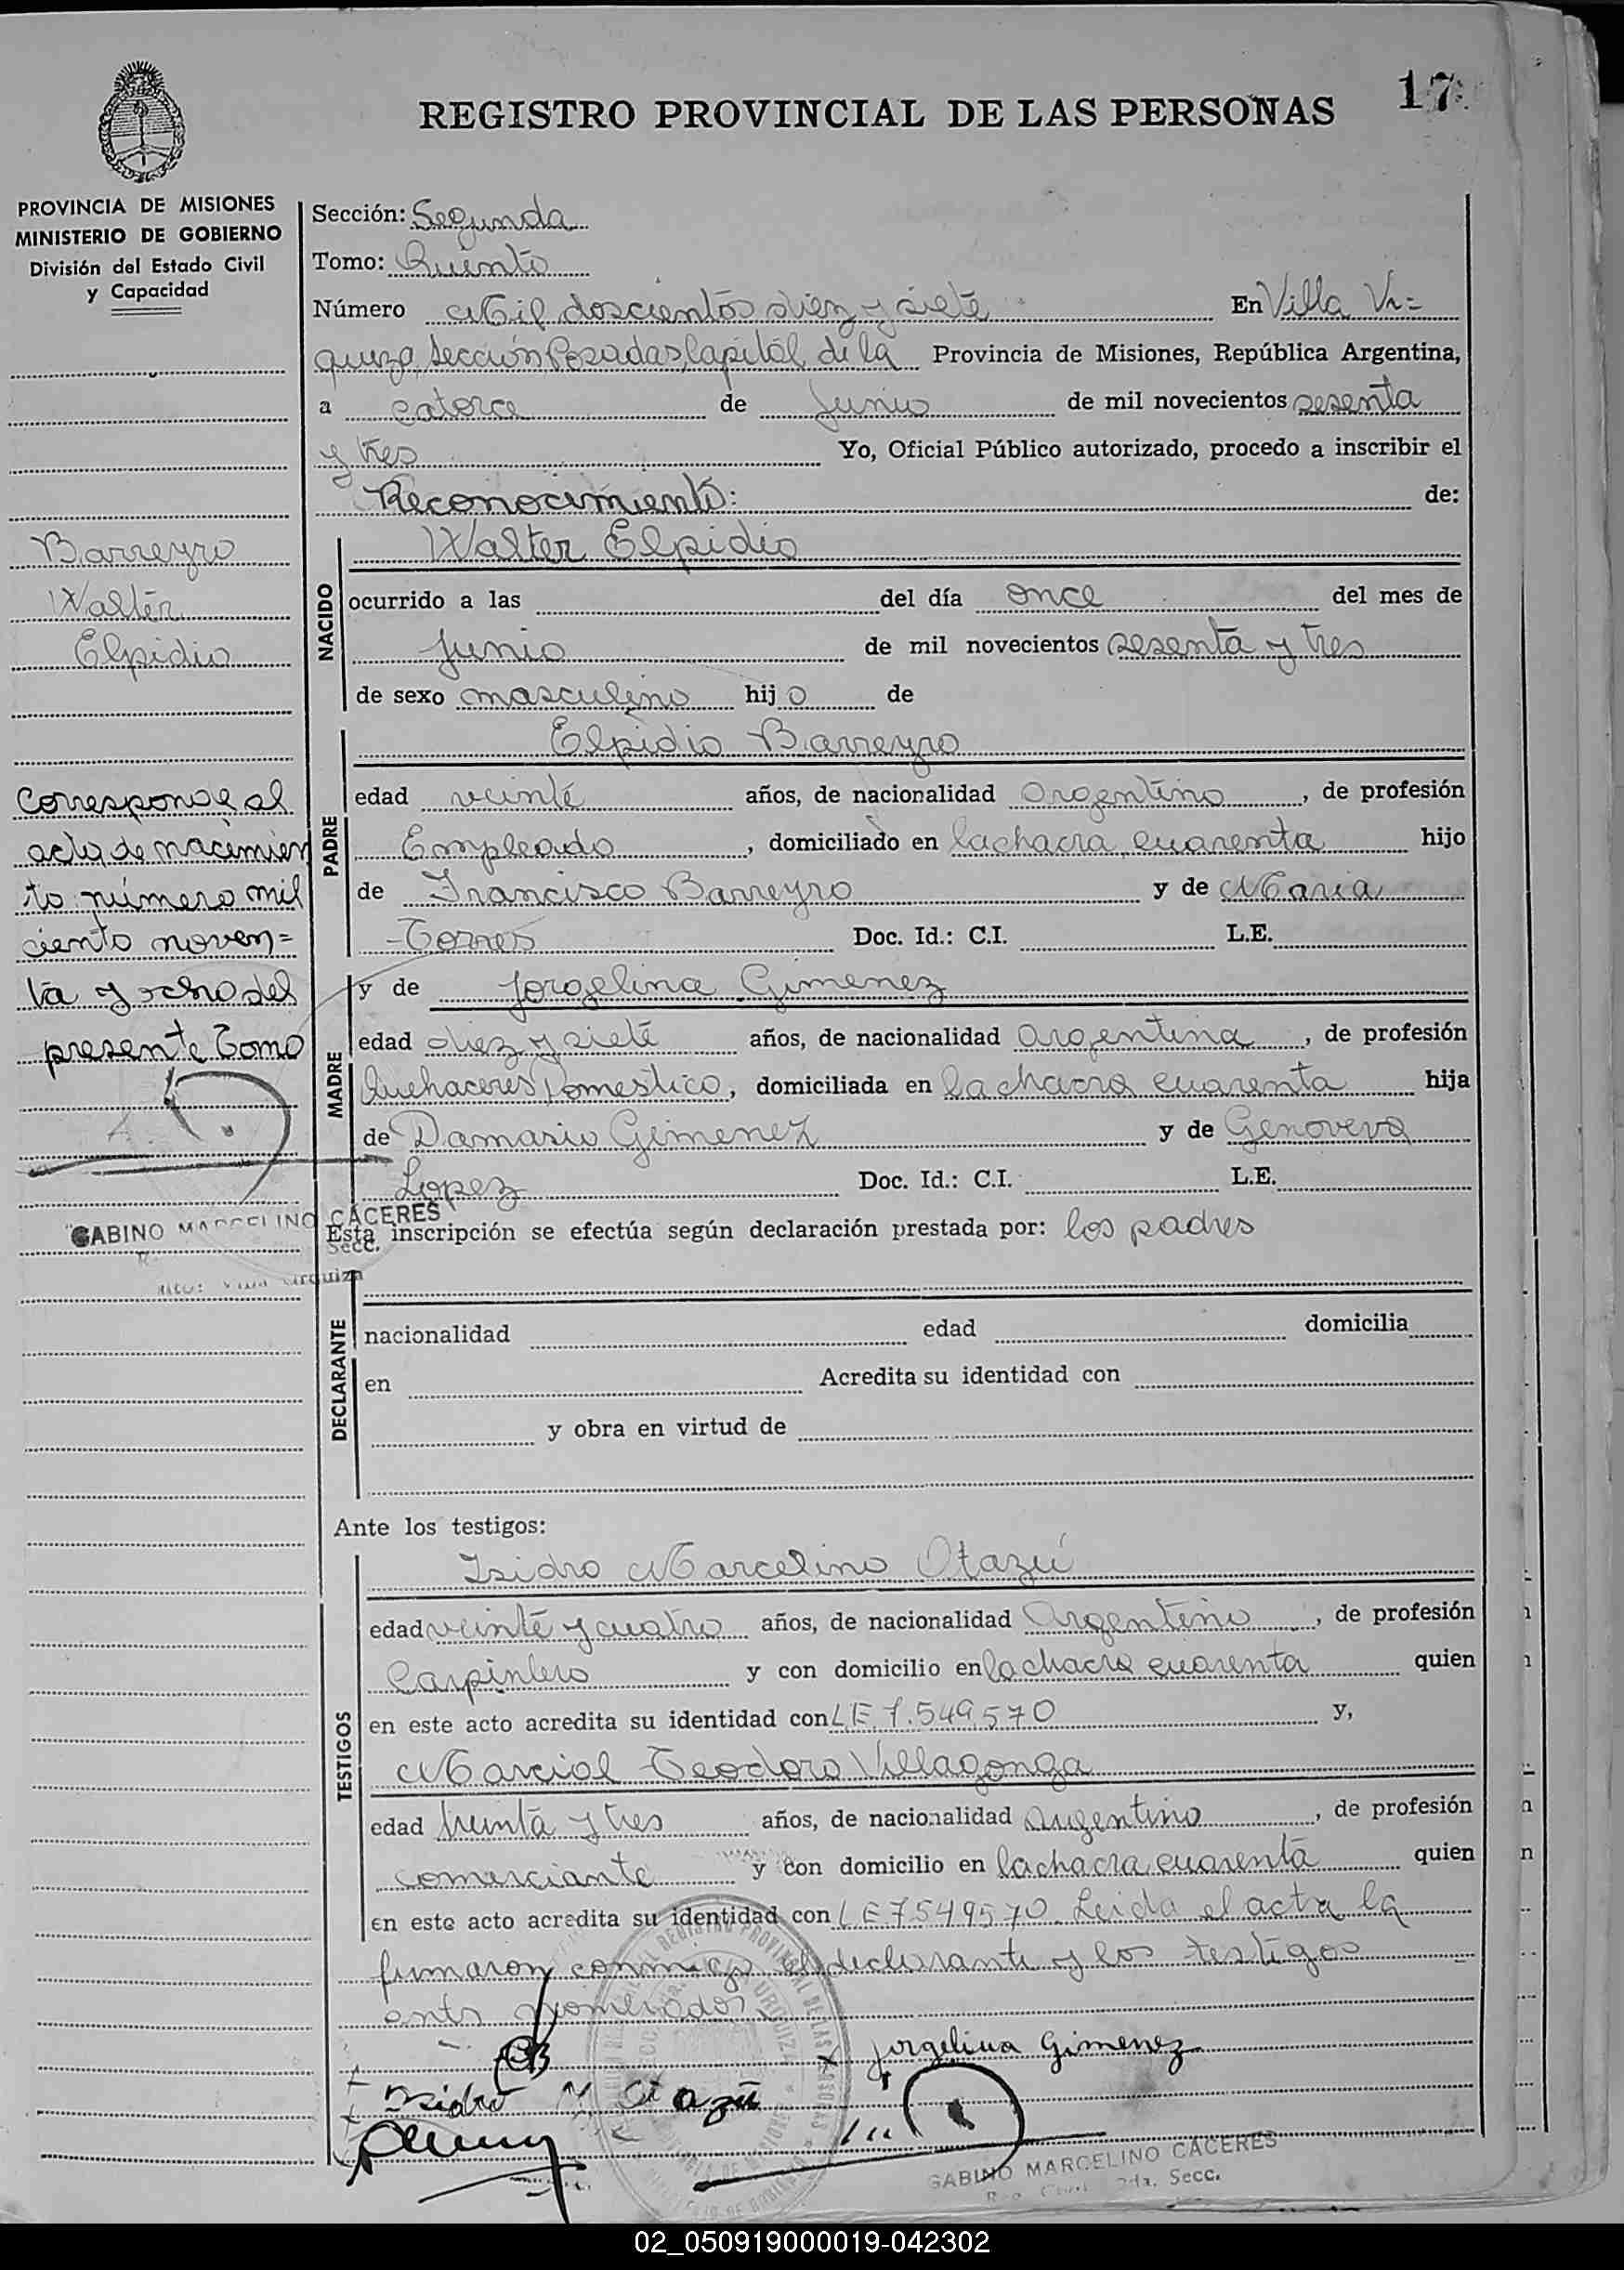 17
REGISTRO PROVINCIAL DE LAS PERSONAS
PROVINCIA DE MISIONES
MINISTERIO DE GOBIERNO
División del Estado Civil
y Capacidad
Barreyro
Walter
Elpidio
Corresponde al
acta de nacimien
to número mil
ciento noven=
ta y ocho del
presente Tomo
GABINO MARCELINO CACERES
Secc.
Villa Urquiza
Sección: Segunda
Tomo: Quinto
Número Mil doscientos diez y siete En Villa Ur=
quiza, Sección Posadas, Capital de la Provincia de Misiones, República Argentina,
a catorce de Junio de mil novecientos sesenta
y tres Yo, Oficial Público autorizado, procedo a inscribir el
Reconocimiento: de:
NACIDO
Walter Elpidio
ocurrido a las del día once del mes de
Junio de mil novecientos sesenta y tres
de sexo masculino hij o de
PADRE
Elpidio Barreyro
edad veinte años, de nacionalidad Argentino, de profesión
Empleado, domiciliado en la chacra cuarenta hijo
de Francisco Barreyro y de Maria
Torres Doc. Id.: C.I. L.E.
MADRE
y de Jorgelina Gimenez
edad diez y siete años, de nacionalidad Argentina, de profesión
Quehaceres Domestico, domiciliada en la chacra cuarenta hija
de Damasio Gimenez y de Genoveva
Lopez Doc. Id.: C.I. L.E.
Esta inscripción se efectúa según declaración prestada por: los padres
DECLARANTE
nacionalidad edad domicilia
en Acredita su identidad con
y obra en virtud de
Ante los testigos:
TESTIGOS
Isidro Marcelino Otazú
edad veinte y cuatro años, de nacionalidad Argentino, de profesión
Carpintero y con domicilio en la chacra cuarenta quien
en este acto acredita su identidad con L.E. 7.549.570 y,
Marcial Teodoro Villagonga
edad treinta y tres años, de nacionalidad Argentino, de profesión
comerciante y con domicilio en la chacra cuarenta quien
en este acto acredita su identidad con LE 7549570. Leida el acta la
firmaron conmigo el declarante y los testigos
ants nombrados
Jorgelina Gimenez
Isidro M Otazú
GABINO MARCELINO CACERES
2da. Secc.
02_050919000019-042302